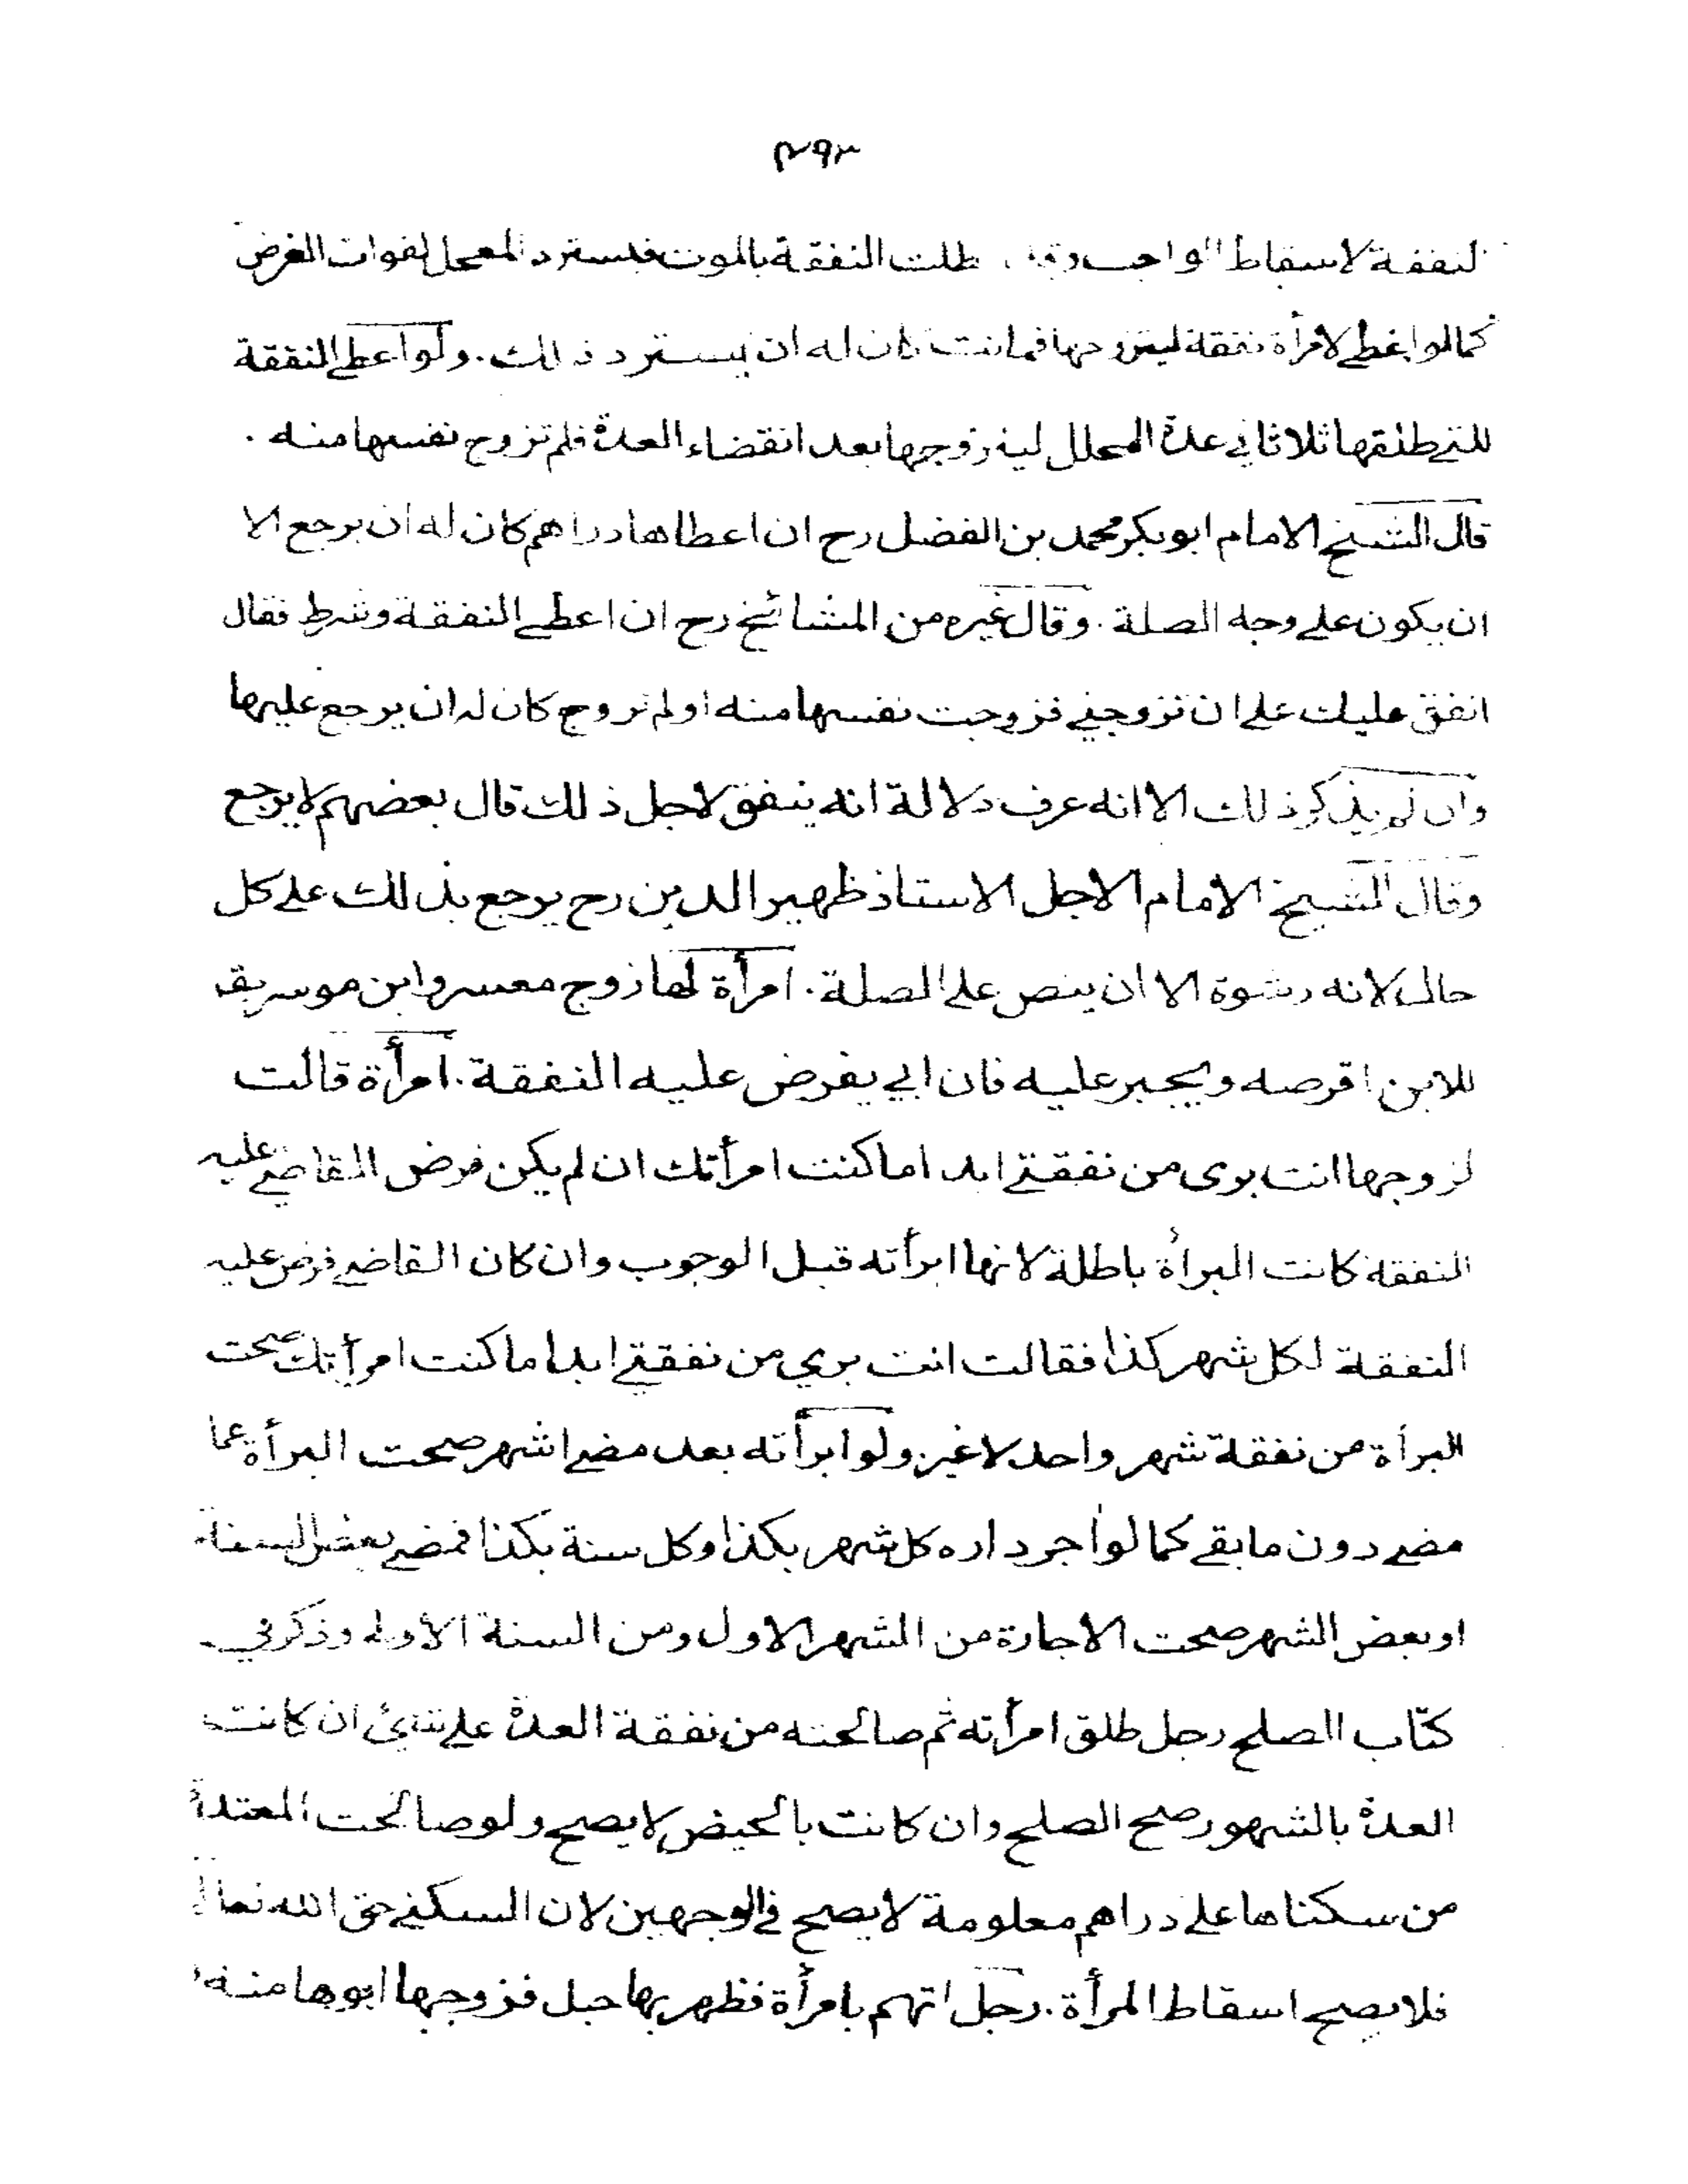 ٣٩٣
النفقة لاسقاط الواجب وقد بطلت النفقة بالموت فيسترد المعجل لفوات الغرض
كما لو اعطى لامرأة نفقة ليتزوجها فماتت كان له ان يسترد ذلك . ولو اعطى النفقة
للتي طلقها ثلاثا في عدة المحلل ليتزوجها بعد انقضاء العدة فلم تزوج نفسها منه .
قال الشيخ الامام ابو بكر محمد بن الفضل رح ان اعطاها دراهم كان له ان يرجع الا
ان يكون على وجه الصلة . وقال غيره من المشائخ رح ان اعطى النفقة وشرط فقال
انفق عليك على ان تزوجيني فزوجت نفسها منه او لم تزوج كان له ان يرجع عليها
وان لم يذكر ذلك الا انه عرف دلالة انه ينفق لاجل ذلك قال بعضهم لا يرجع
وقال الشيخ الامام الاجل الاستاذ ظهير الدين رح يرجع بذلك على كل
حال لانه رشوة الا ان ينص على الصلة . امرأة لها زوج معسر وابن موسر يق
للابن اقرضه ويجبر عليه فان ابى يفرض عليه النفقة . امرأة قالت
لزوجها انت برى من نفقتي ابدا ما كنت امرأتك ان لم يكن فرض القاضي عليه
النفقة كانت البرأة باطلة لانها ابرأته قبل الوجوب وان كان القاضي فرض عليه
النفقة لكل شهر كذا فقالت انت بري من نفقتي ابدا ما كنت امرأتك صحت
البرأة من نفقة شهر واحد لا غير ولو ابرأته بعد مضي اشهر صحت البرأة عما
مضى دون ما بقي كما لو اجر داره كل شهر بكذا وكل سنة بكذا فمضى بعض السنة
او بعض الشهر صحت الاجارة من الشهر الاول ومن السنة الاولى وذكر في
كتاب الصلح رجل طلق امرأته ثم صالحته من نفقة العدة على شئ ان كانت
العدة بالشهور صح الصلح وان كانت بالحيض لا يصح ولو صالحت المعتدة
من سكناها على دراهم معلومة لا يصح في الوجهين لان السكنى حق الله تعالى
فلا يصح اسقاط المرأة . رجل اتهم بامرأة فظهر بها حبل فزوجها ابوها منه